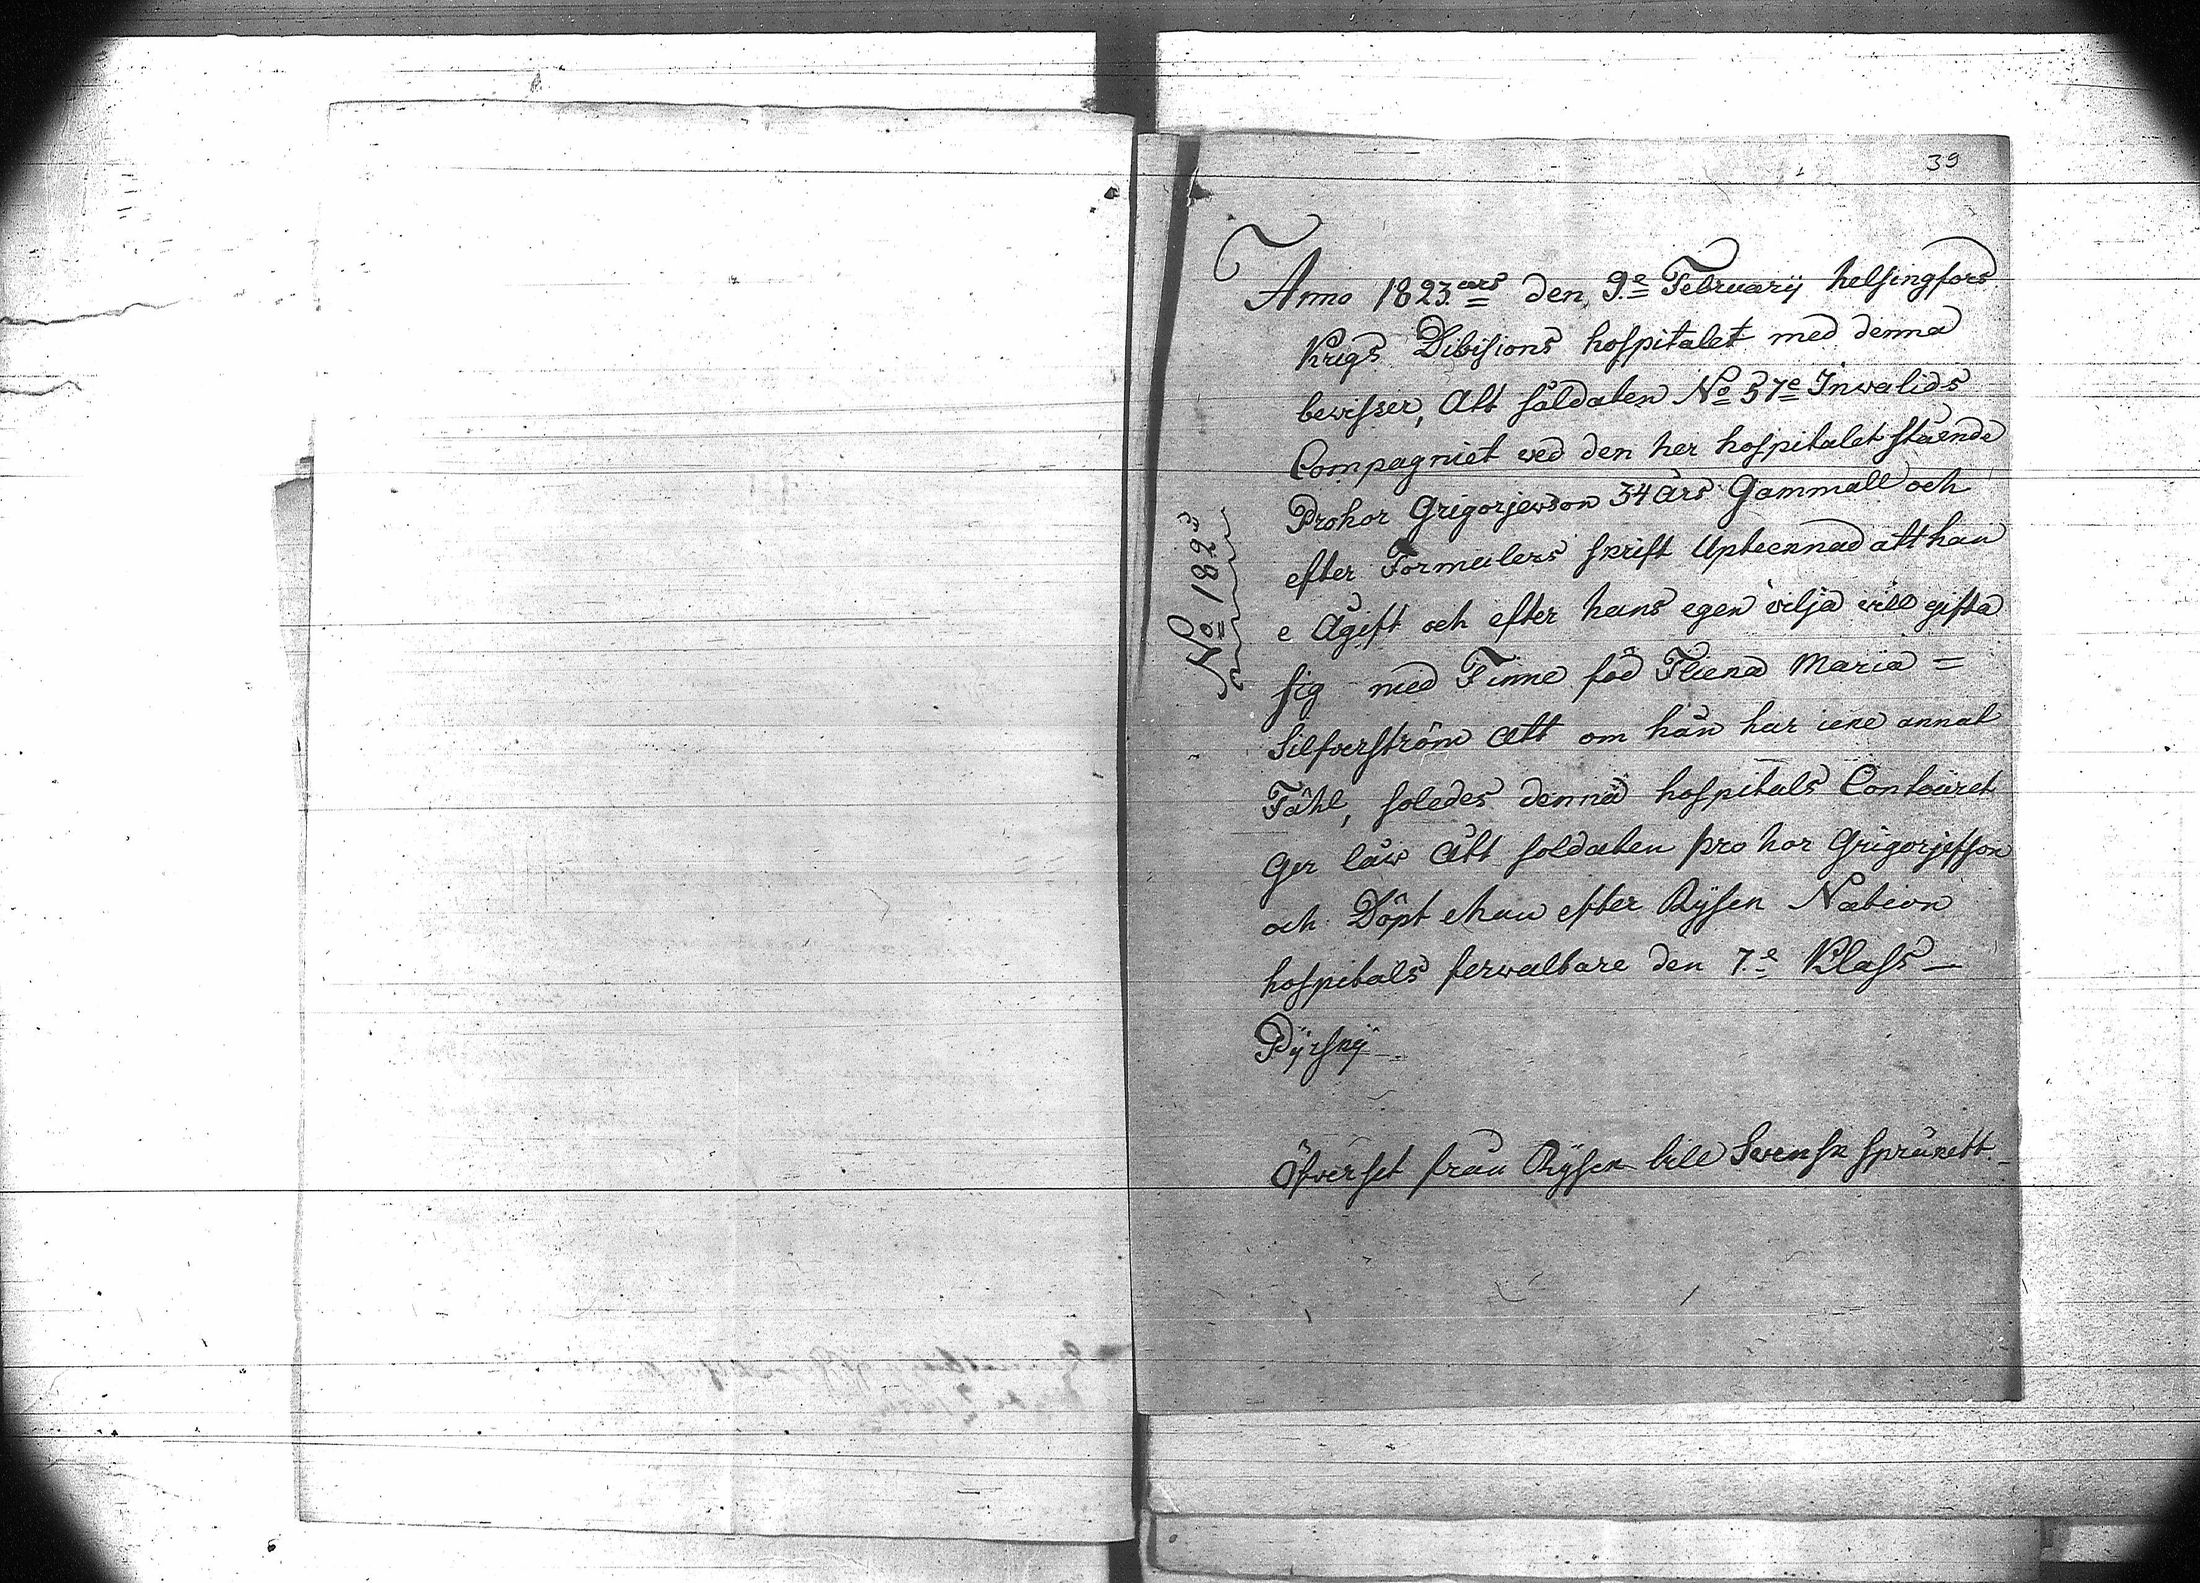 39
Anno 1823 ars den 9e Februarij helsingfors
Krigs Dibisions hospitalet med denna
bevisser, Att såldaten No 57e Inwalids
Compagniet ved den her hospitalet stående
Prohor Grigorjewson 34 års Gammall och
efter Formulers skrift Upteknad att han
e Ågift och efter hans egen vilja vill gifta
sig med Finne föd Maria =
Silfverström att om hån har icke annat
Fåhl, soledes denna hospitals Contöuret
Ger låw Att soldaten pro hor Grigorjefson
och Döpt ehan efter Rÿsen Nation
hospitals ferwaltare den 7e Klass —
Pÿrskÿ
Öfverset från Rÿsen till Svensk språkett.
No 1823